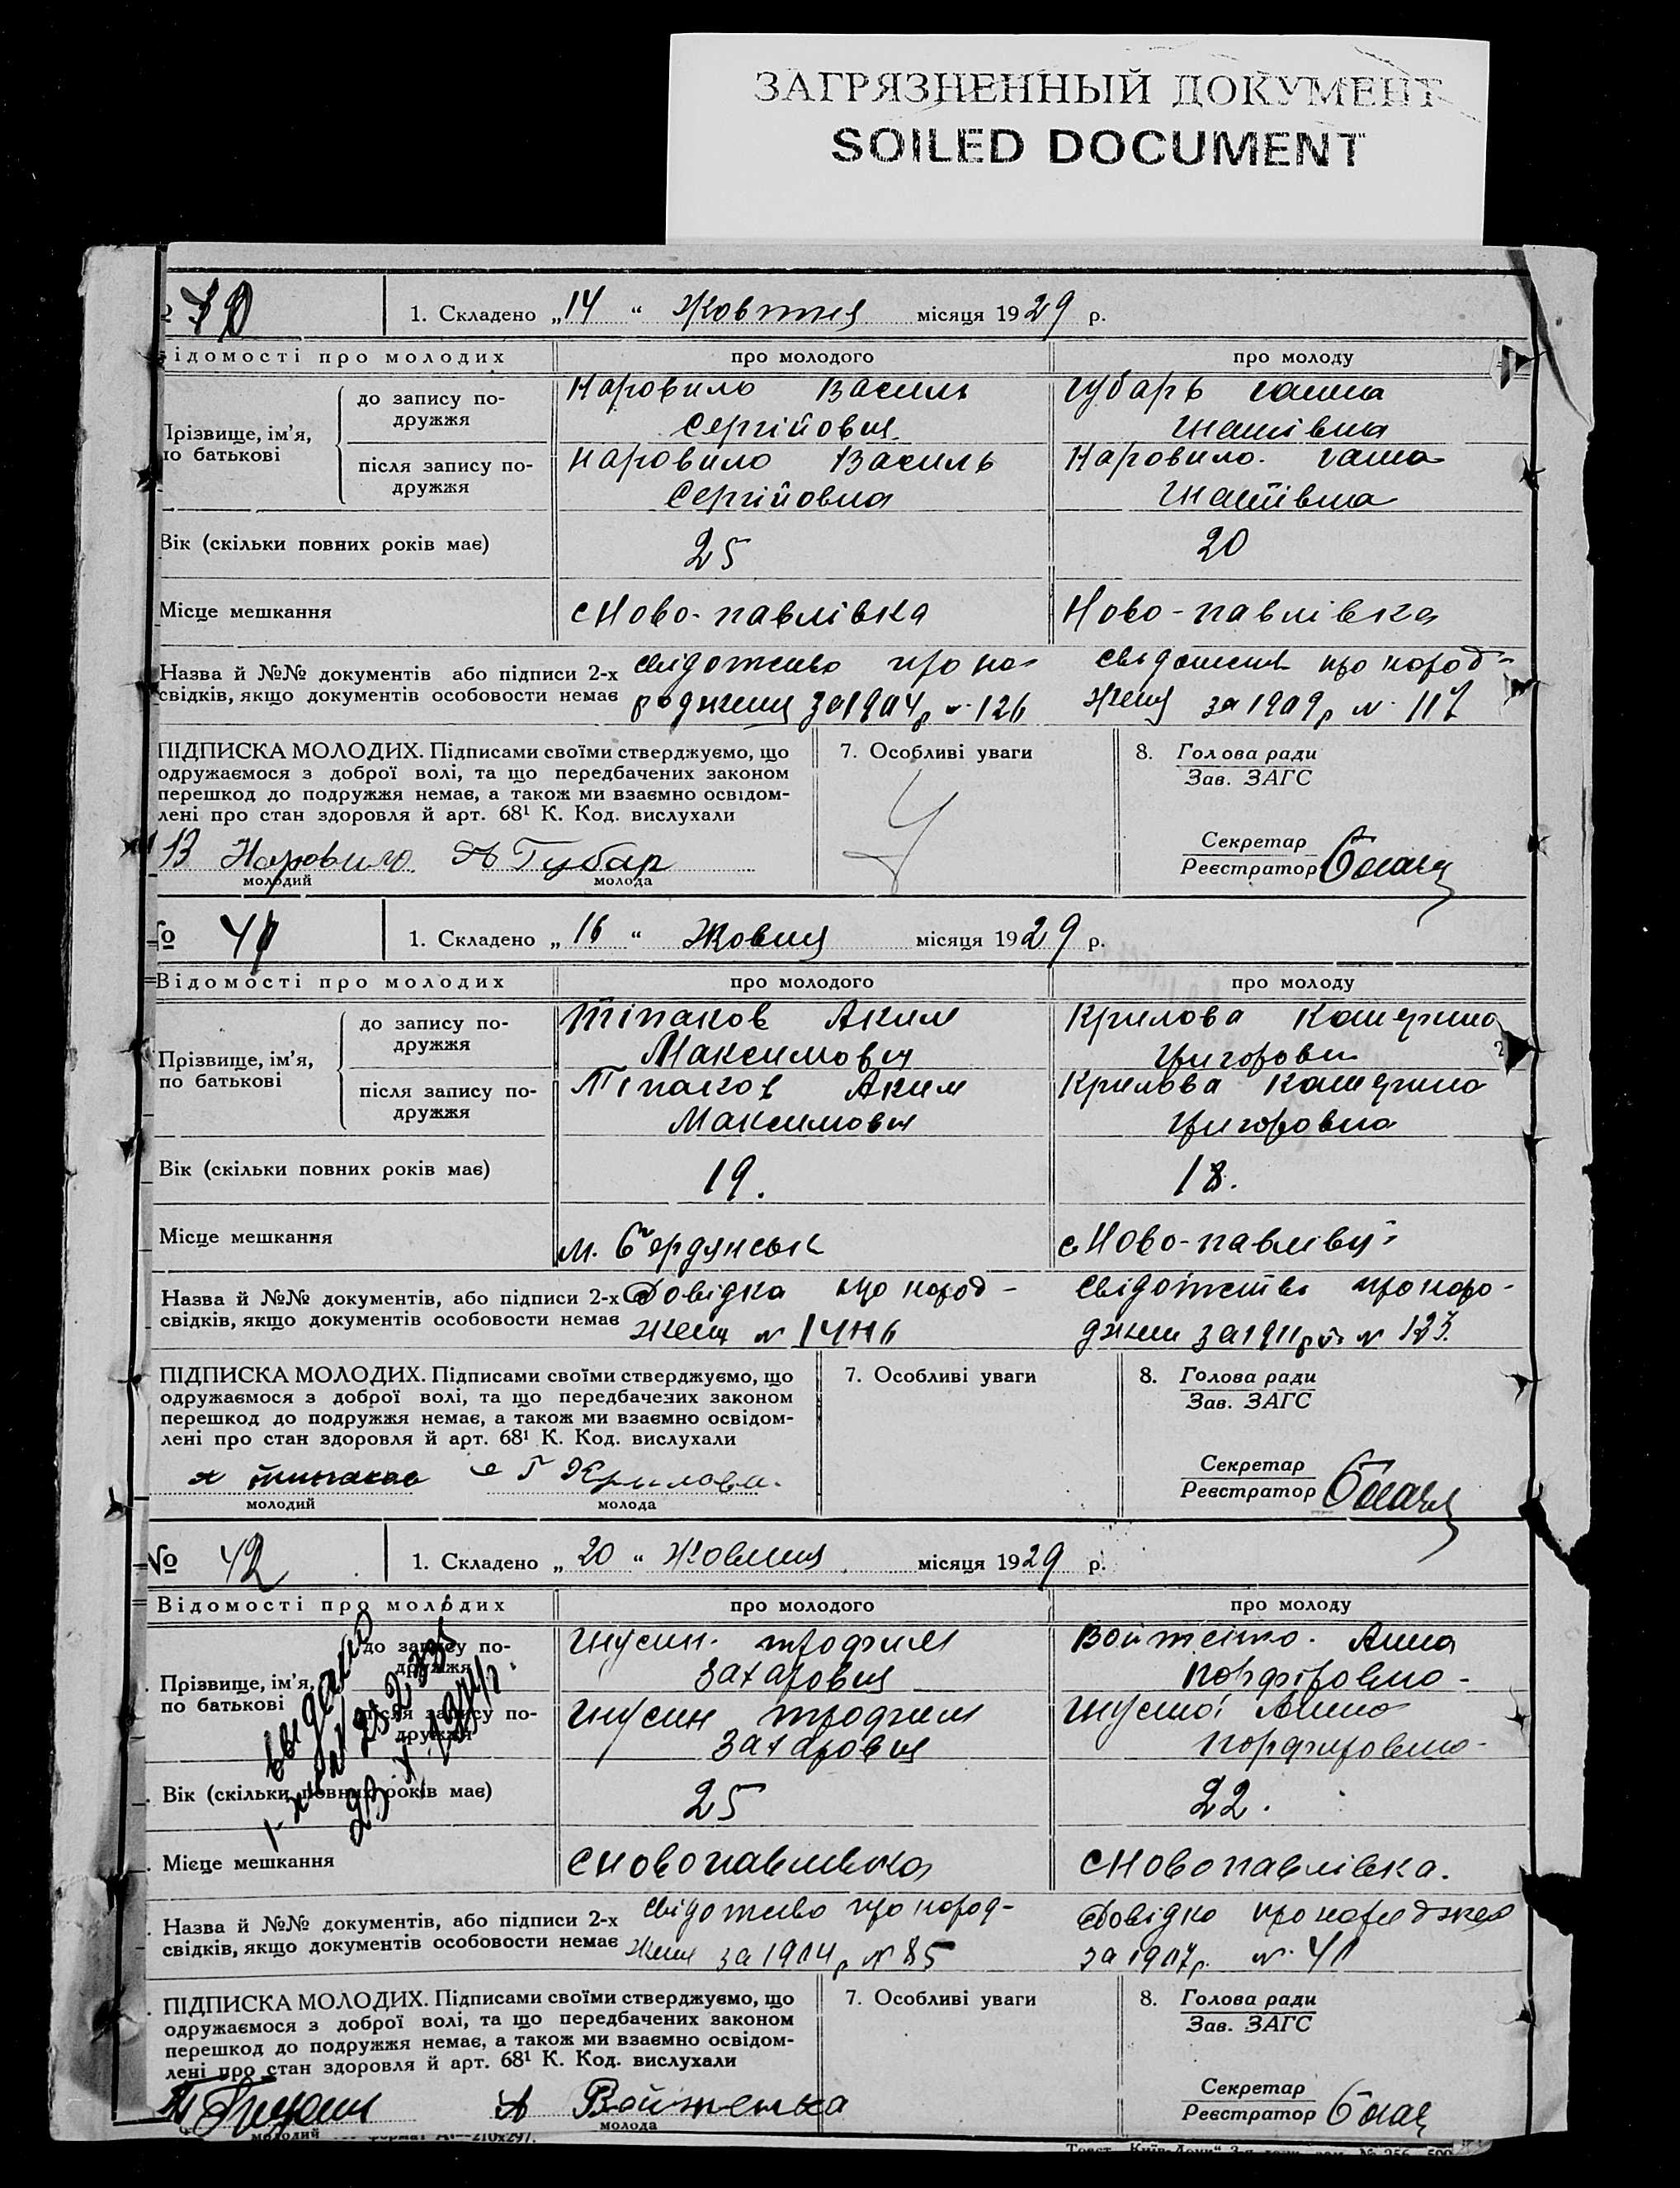 ЗАГРЯЗНЕННЫЙ ДОКУМЕНТ
SOILED DOCUMENT
1. Складено „14“ Жовтня місяця 1929 р.
ідомості про молодих про молодого про молоду
Прізвище, ім'я, по батькові
до запису подружжя
Наровило Василь Сергійович
Губарь Ганна Гнатівна
після запису подружжя
Наровило Василь
Наровило Ганна Гнатівна
Вік (скільки повних років має) 25 20
Місце мешкання с Ново-павлівка Ново-павлівка
Назва й №№ документів або підписи 2-х свідків, якщо документів особовости немає
про народження за 1904 р № 126
про народження за 1909 р № 117
ПІДПИСКА МОЛОДИХ. Підписами своїми стверджуємо, що
одружаємося з доброї волі, та що передбачених законом
перешкод до подружжя немає, а також ми взаємно освідом-
лені про стан здоровля й арт. 68¹ К. Код. вислухали
В Наровило Губар
молодий молода
7. Особливі уваги
8. Голова ради
Зав. ЗАГС
Секретар
Реєстратор
№ 41 1. Складено „16“ місяця 1929 р.
Відомості про молодих про молодого про молоду
Прізвище, ім'я,
по батькові
до запису по-
дружжя
Аким
Максимович
Крилова Катерина
після запису по-
дружжя
Аким
Максимович
Крилова Катерина
Григоровна
Вік (скільки повних років має) 19. 18.
Місце мешкання м. Бердянськ с Ново-павлівці
Назва й №№ документів, або підписи 2-х
свідків, якщо документів особовости немає
Довідка про народ-
ження №
Свідотство про наро-
дження за 1911 р №
ПІДПИСКА МОЛОДИХ. Підписами своїми стверджуємо, що
одружаємося з доброї волі, та що передбачених законом
перешкод до подружжя немає, а також ми взаємно освідом-
лені про стан здоровля й арт. 68¹ К. Код. вислухали
Крилова
молодий молода
7. Особливі уваги
8. Голова ради
Зав. ЗАГС
Секретар
Реєстратор
№ 42 1. Складено „20“ місяця 1929 р.
Відомості про молодих про молодого про молоду
Прізвище, ім'я,
по батькові
до запису по-
дружжя
Трофим
Захарович
Войтенко Анна
після запису по-
дружжя
Трофим
Захарович
Анна
Вік (скільки повних років має) 25 22.
Місце мешкання с Новопавлівка с Новопавлівка.
Назва й №№ документів, або підписи 2-х
свідків, якщо документів особовости немає
про народ-
ження за 1904 р № 85
Довідка про
за 1907 р. № 41
ПІДПИСКА МОЛОДИХ. Підписами своїми стверджуємо, що
одружаємося з доброї волі, та що передбачених законом
перешкод до подружжя немає, а також ми взаємно освідом-
лені про стан здоровля й арт. 68¹ К. Код. вислухали
А Войтенко
молодий молода
7. Особливі уваги
8. Голова ради
Зав. ЗАГС
Секретар
Реєстратор